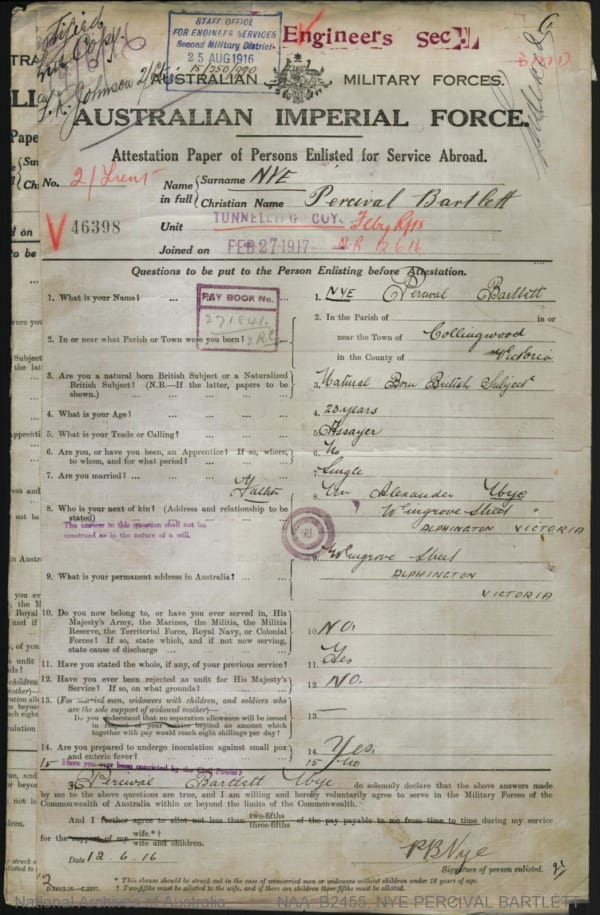 Certified
True Copy.
STAFF OFFICE
FOR ENGINEER SERVICES
Second Military District
25 AUG 1916
Engineers Sec
AUSTRALIAN MILITARY FORCES.
AUSTRALIAN IMPERIAL FORCE.
Attestation Paper of Persons Enlisted for Service Abroad.
No. 2/Lieut Name in full Surname NYE
Christian Name Percival Bartlett
V 46398 Unit TUNNELLING COYS
Joined on FEB 27 1917 12.6.16
Questions to be put to the Person Enlisting before Attestation.
1. What is your Name? ... ... 1. NYE Percival Bartlett
PAY BOOK No.
2. In or near what Parish or Town were you born? 2. In the Parish of in or
near the Town of Collingwood
in the County of Victoria
3. Are you a natural born British Subject or a Naturalized
British Subject? (N.B.—If the latter, papers to be
shown.) 3. Natural Born British Subject
4. What is your Age? ... 4. 23 years
5. What is your Trade or Calling? ... 5. Assayer
6. Are you, or have you been, an Apprentice? If so, where,
to whom, and for what period? ... 6. No
7. Are you married? ... 7. Single
Father
8. Who is your next of kin? (Address and relationship to be
stated) 8. Alexander Nye
Wingrove Street
ALPHINGTON VICTORIA
The answer to this question shall not be
construed as in the nature of a will.
9. What is your permanent address in Australia? ... 9. Wingrove Street
ALPHINGTON
VICTORIA
10. Do you now belong to, or have you ever served in, His
Majesty's Army, the Marines, the Militia, the Militia
Reserve, the Territorial Force, Royal Navy, or Colonial
Forces? If so, state which, and if not now serving,
state cause of discharge ... 10. NO.
11. Have you stated the whole, if any, of your previous service? 11. Yes
12. Have you ever been rejected as unfit for His Majesty's
Service? If so, on what grounds? 12. NO.
13. (For married men, widowers with children, and soldiers who
are the sole support of widowed mother)—
Do you understand that no separation allowance will be issued
in respect of your service beyond an amount which
together with pay would reach eight shillings per day? 13. —
14. Are you prepared to undergo inoculation against small pox
and enteric fever? 14. Yes.
15 Have you ever been convicted by the Civil Power? 15 no
I, Percival Bartlett Nye do solemnly declare that the above answers made
by me to the above questions are true, and I am willing and hereby voluntarily agree to serve in the Military Forces of the
Commonwealth of Australia within or beyond the limits of the Commonwealth.
And I further agree to allot not less than two-fifths three-fifths of the pay payable to me from time to time during my service
for the support of my wife.*†
wife and children.
Date 12.6.16 P B Nye
Signature of person enlisted.
* This clause should be struck out in the case of unmarried men or widowers without children under 18 years of age.
† Two-fifths must be allotted to the wife, and if there are children three-fifths must be allotted.
National Archives of Australia NAA: B2455, NYE PERCIVAL BARTLETT